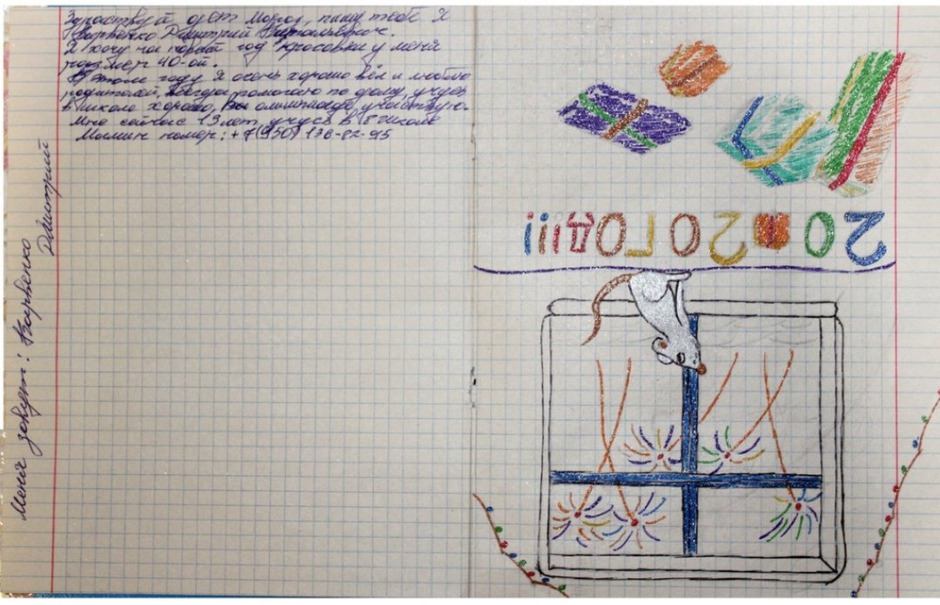 Здравствуй дет Мороз, пишу тебе Я
Карпенко Дмитрий Витальевич.
Я хочу на новый год кросовки у меня
размер 40-ой.
В этом году я очень хорошо вёл и люблю
родителей, всегда помогаю по дому, учусь
в школе хорошо, олимпиаде учавствую.
Мне сейчас 13 лет, учусь в 8 школе
Мамин номер: +7(950) 136-82-95
Меня зовут: Карпенко
Дмитрий
2020 ГОД!!!